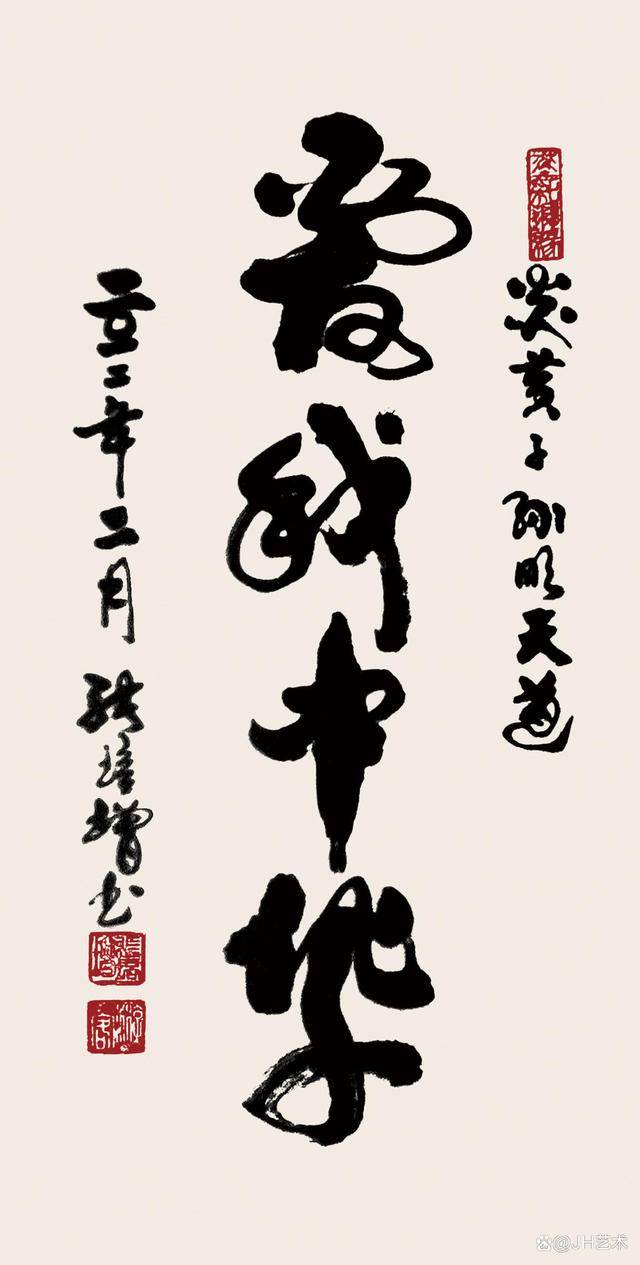 炎黄子孙明天道
爱我中华
二〇二二年二月
张培增书
@JH艺术